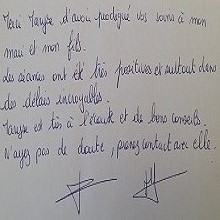 Merci Maryse d'avoir prodigué vos soins à mon
mari et mon fils.
Les séances ont été très positives et surtout dans
des délais incroyables.
Maryse est très à l'écoute et de bons conseils.
N'ayez pas de doute, prenez contact avec elle.